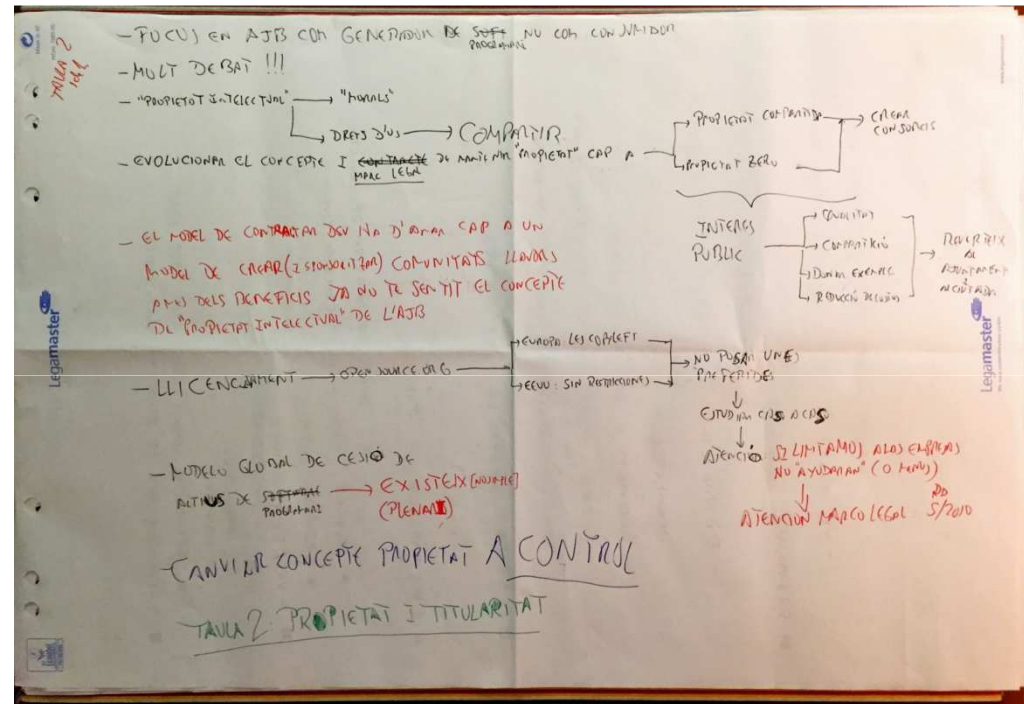 TAULA 2
- FOCUS EN AJB COM GENERADOR DE SOFT NO COM CONSUMIDOR
PROGRAMARI
- MOLT DEBAT !!!
- "PROPIETAT INTELECTUAL" → "MORALS"
→ DRETS D'US → COMPARTIR
- EVOLUCIONAR EL CONCEPTE I CONTRACTE DE MANTENIR "PROPIETAT" CAP A
MARC LEGAL
→ PROPIETAT COMPARTIDA → CREAR
CONSORCIS
→ PROPIETAT ZERO
INTERES
PUBLIC
→ QUALITAT
→ COMPARTICIÓ
→ DONAR EXEMPLE
→ REDUCCIÓ DE COSTOS
→ REVERTEIX
AL
AJUNTAMENT
I
CIUTADA
- EL MODEL DE CONTRACTAR DEV HA D'ANAR CAP A UN
MODEL DE CREAR (I SPONSORITZAR) COMUNITATS LLAVORS
DELS BENEFICIS JA NO TE SENTIT EL CONCEPTE
DE "PROPIETAT INTELECTUAL" DE L'AJB
- LLICENCIAMENT → OPEN SOURCE ORG
→ EUROPA LES COPYLEFT
→ EEUU: SIN RESTRICCIONES
→ NO POSAR UNES
PREFERIDES
↓
ESTUDIAR CAS A CAS
↓
ATENCIÓ SI LIMITAMOS A LAS EMPRESAS
NO "AYUDARAN" (O MENOS)
↓
ATENCION MARCO LEGAL RD
5/2010
- MODELO GLOBAL DE CESIÓ DE
ACTIUS DE SOFTWARE → EXISTEIX
PROGRAMARI (PLENARI)
- CANVIAR CONCEPTE PROPIETAT A CONTROL
TAULA 2 PROPIETAT I TITULARITAT
Legamaster
Legamaster